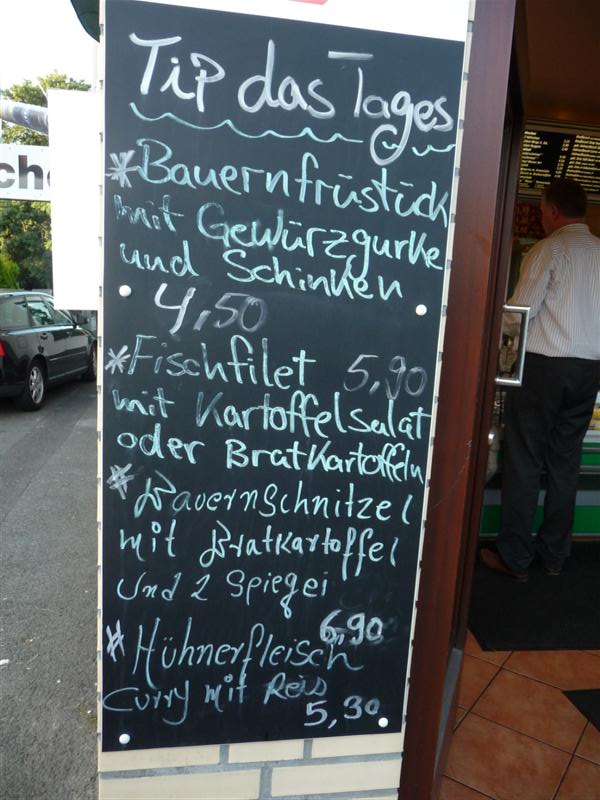 Tip das Tages
*Bauernfrüstück
mit Gewürzgurke
und Schinken
4,50
*Fischfilet 5,90
mit Kartoffelsalat
oder Bratkartoffeln
*Bauernschnitzel
mit Bratkartoffel
und 2 Spiegei
6,90
*Hühnerfleisch
Curry mit Reis
5,30
ch